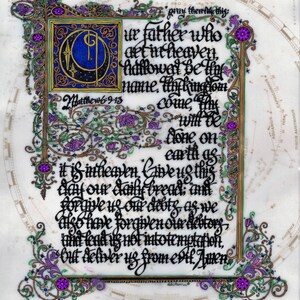 pray then like this:
Our father who
art in heaven
hallowed be thy
name, thy kingdom
come, thy
will be
done on
earth as
it is in heaven. Give us this
day our daily bread; and
forgive us our debts, as we
also have forgiven our debtors;
and lead us not into temptation,
but deliver us from evil. Amen.
Matthew 6:9-13